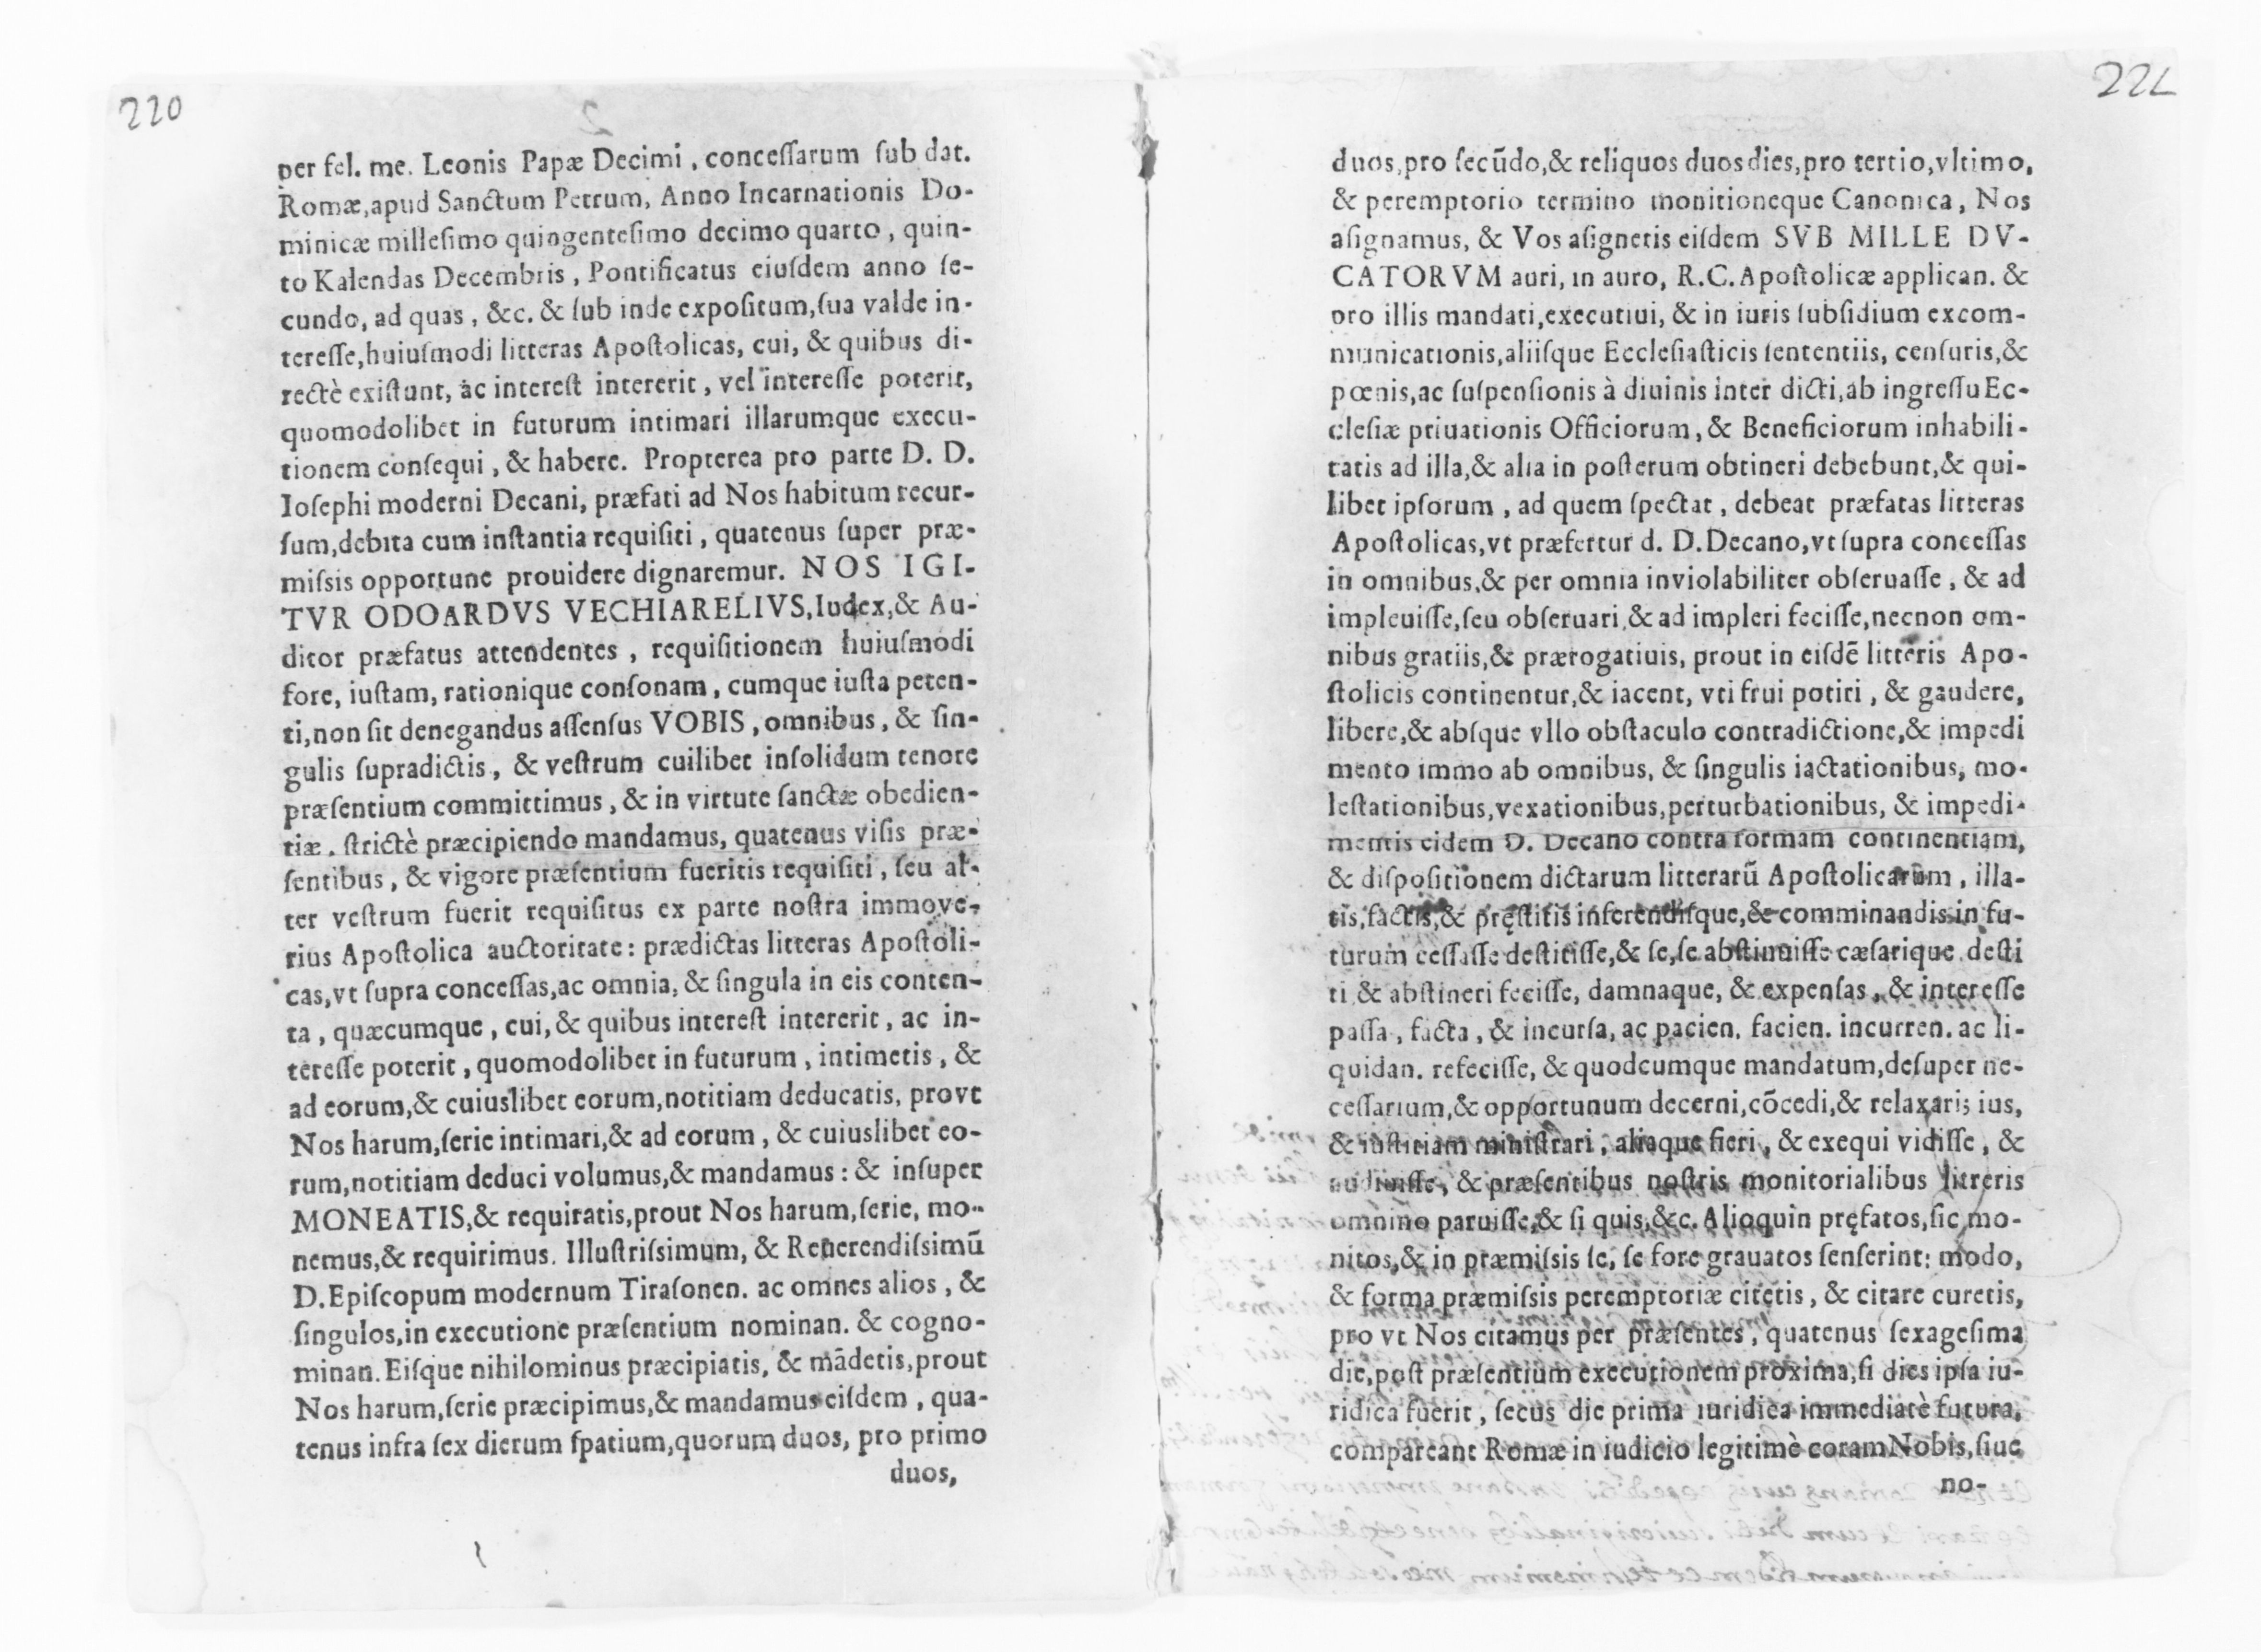 220
per fel. me. Leonis Papæ Decimi, concessarum sub dat.
Romæ, apud Sanctum Petrum, Anno Incarnationis Do-
minicæ millesimo quingentesimo decimo quarto, quin-
to Kalendas Decembris, Pontificatus eiusdem anno se-
cundo, ad quas, &c. & sub inde expositum, sua valde in-
teresse, huiusmodi litteras Apostolicas, cui, & quibus di-
rectè existunt, ac interest intererit, vel interesse poterit,
quomodolibet in futurum intimari illarumque execu-
tionem consequi, & habere. Propterea pro parte D. D.
Iosephi moderni Decani, præfati ad Nos habitum recur-
sum, debita cum instantia requisiti, quatenus super præ-
missis opportune prouidere dignaremur. NOS IGI-
TVR ODOARDVS VECHIARELIVS, Iudex, & Au-
ditor præfatus attendentes, requisitionem huiusmodi
fore, iustam, rationique consonam, cumque iusta peten-
ti, non sit denegandus assensus VOBIS, omnibus, & sin-
gulis supradictis, & vestrum cuilibet insolidum tenore
præsentium committimus, & in virtute sanctæ obedien-
tiæ. strictè præcipiendo mandamus, quatenus visis præ-
sentibus, & vigore præsentium fueritis requisiti, seu al-
ter vestrum fuerit requisitus ex parte nostra immove-
rius Apostolica auctoritate: prædictas litteras Apostoli-
cas, vt supra concessas, ac omnia, & singula in eis conten-
ta, quæcumque, cui, & quibus interest intererit, ac in-
teresse poterit, quomodolibet in futurum, intimetis, &
ad eorum, & cuiuslibet eorum, notitiam deducatis, provt
Nos harum, serie intimari, & ad eorum, & cuiuslibet eo-
rum, notitiam deduci volumus, & mandamus: & insuper
MONEATIS, & requiratis, prout Nos harum, serie, mo-
nemus, & requirimus. Illustrissimum, & Reuerendissimū
D. Episcopum modernum Tirasonen. ac omnes alios, &
singulos, in executione præsentium nominan. & cogno-
minan. Eisque nihilominus præcipiatis, & mādetis, prout
Nos harum, serie præcipimus, & mandamus eisdem, qua-
tenus infra sex dierum spatium, quorum duos, pro primo
duos,
221
duos, pro secūdo, & reliquos duos dies, pro tertio, vltimo,
& peremptorio termino monitioneque Canonica, Nos
asignamus, & Vos asignetis eisdem SVB MILLE DV-
CATORVM auri, in auro, R. C. Apostolicæ applican. &
pro illis mandati, executiui, & in iuris subsidium excom-
municationis, aliisque Ecclesiasticis sententiis, censuris, &
pœnis, ac suspensionis à diuinis inter dicti, ab ingressu Ec-
clesiæ priuationis Officiorum, & Beneficiorum inhabili-
tatis ad illa, & alia in posterum obtineri debebunt, & qui-
libet ipsorum, ad quem spectat, debeat præfatas litteras
Apostolicas, vt præfertur d. D. Decano, vt supra concessas
in omnibus, & per omnia inviolabiliter obseruasse, & ad
impleuisse, seu obseruari, & ad impleri fecisse, necnon om-
nibus gratiis, & prærogatiuis, prout in eisdē litteris Apo-
stolicis continentur, & iacent, vti frui potiri, & gaudere,
libere, & absque vllo obstaculo contradictione, & impedi
mento immo ab omnibus, & singulis iactationibus, mo-
lestationibus, vexationibus, perturbationibus, & impedi-
mentis eidem D. Decano contra formam continentiam,
& dispositionem dictarum litterarū Apostolicarum, illa-
tis, factis, & pręstitis inferendisque, & comminandis in fu-
turum cessasse destitisse, & se, se abstinuisse cæsarique desti
ti & abstineri fecisse, damnaque, & expensas, & interesse
passa, facta, & incursa, ac pacien. facien. incurren. ac li-
quidan. refecisse, & quodcumque mandatum, desuper ne-
cessarium, & opportunum decerni, cōcedi, & relaxari; ius,
& iustitiam ministrari, aliaque fieri, & exequi vidisse, &
audiuisse, & præsentibus nostris monitorialibus litteris
omnino paruisse, & si quis, &c. Alioquin pręfatos, sic mo-
nitos, & in præmissis se, se fore grauatos senserint: modo,
& forma præmissis peremptoriæ citetis, & citare curetis,
pro vt Nos citamus per præsentes, quatenus sexagesima
die, post præsentium executionem proxima, si dies ipsa iu-
ridica fuerit, secus die prima iuridica immediatè futura,
compareant Romæ in iudicio legitimè coram Nobis, siue
no-